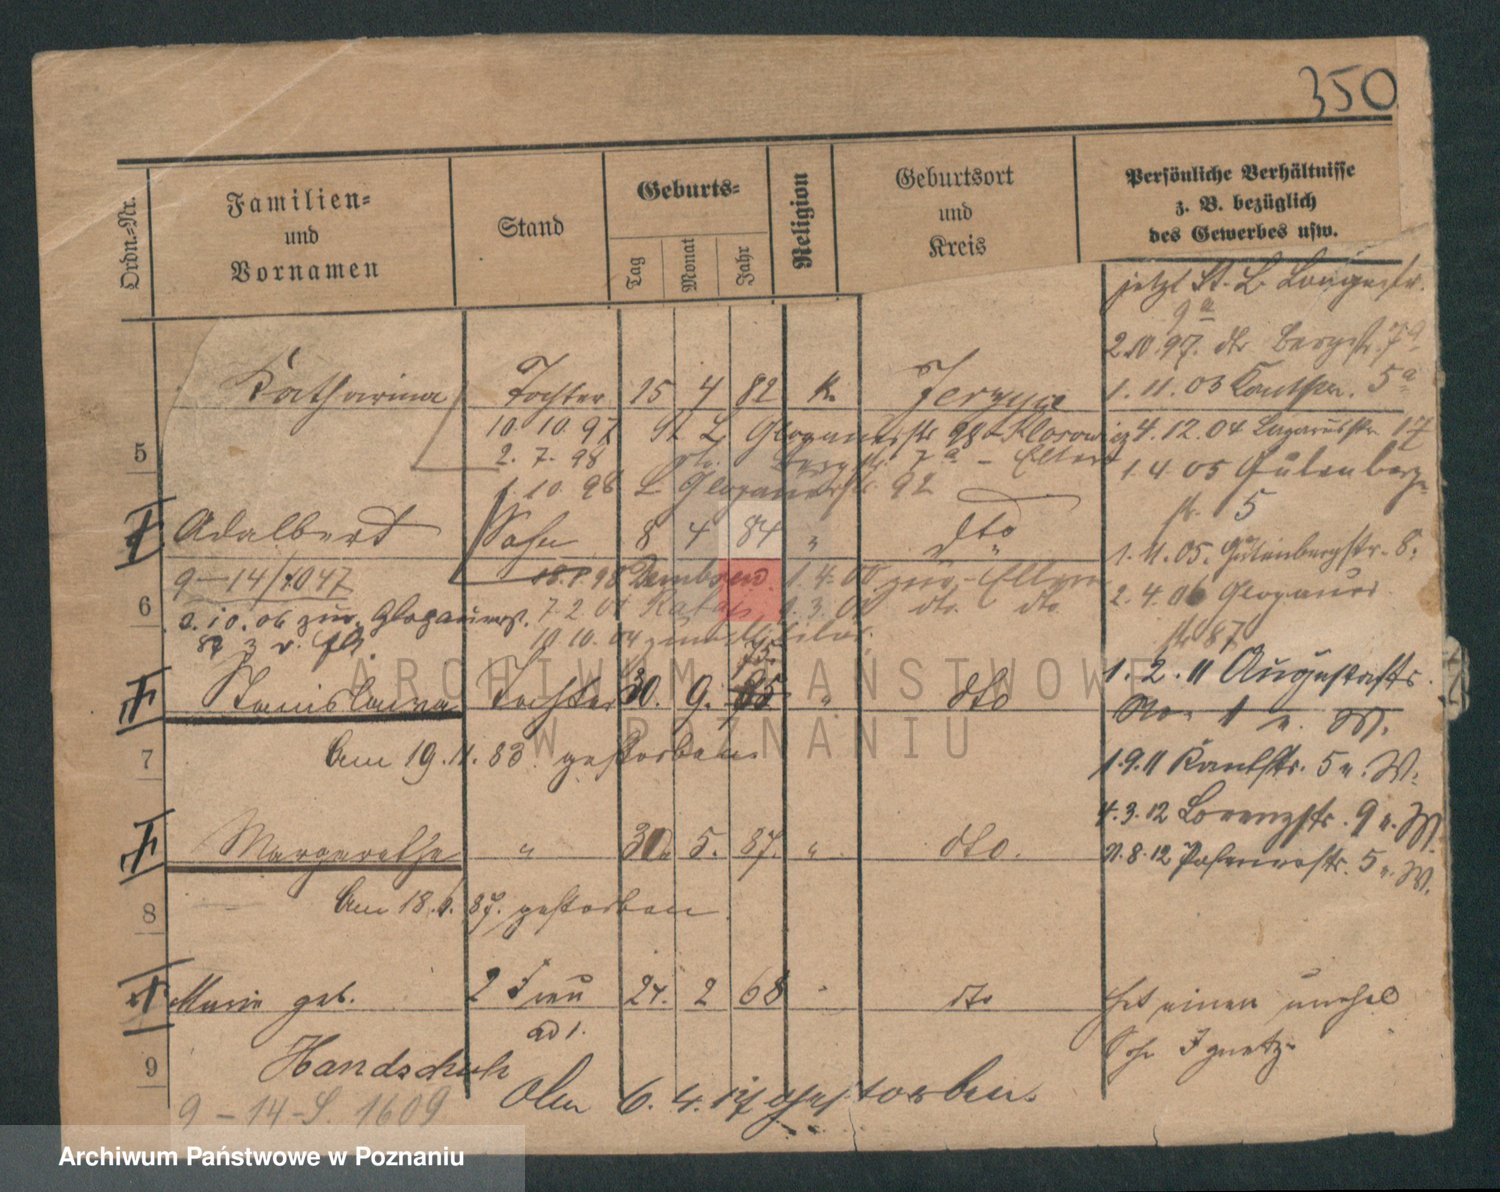 350
Ordn.-Nr.
Familien-
und
Vornamen
Stand
Geburts-
Tag
Monat
Jahr
Religion
Geburtsort
und
Kreis
Persönliche Verhältnisse
z. B. bezüglich
des Gewerbes usw.
jetzt St. L.
9a
2.10.97. dto Bergstr. 7a
Katharina Tochter 15 4 82 k. Jerzyce
1.11.03 Kantstr. 5a
5
10.10.97 St L Glogauerstr 98
4.12.04 Lazarusstr. 17
2. 7. 98 Bergstr. 7a - Eltern
1.4.05 Gutenberg-
1.10.98 L. Glogauerstr. 92
str. 5
Adalbert Sohn 8 4 84 " dto
1.11.05. Gutenbergstr. 8.
9-14/1047
18.1.98 1.4.00 zur. Eltern
2.4.06 Glogauer
6
2.10.06 zur. Glogauerst.
dto. dto
str 87
87
10.10.04 zum Militär.
75.
1.2.11 Augustastr.
Stanislawa Tochter 30. 9. 85 " dto
No. 1 v. W.
7
Am 19.11.83. gestorben.
1.9.11 Kantstr. 5 v. W.
4.3.12 Lorenzstr. 9 v. W.
Margarethe " 30. 5. 87. " dto.
11.8.12 5 v. W.
8
Am 18. 87. gestorben.
Marie geb. 2 Frau 24. 2 68 " dto
hat einen unehel
ad 1.
Sohn Ignatz.
9
Handschuh
Am 6. 4. gestorben.
9-14-S. 1609
ARCHIWUM PAŃSTWOWE
W POZNANIU
Archiwum Państwowe w Poznaniu